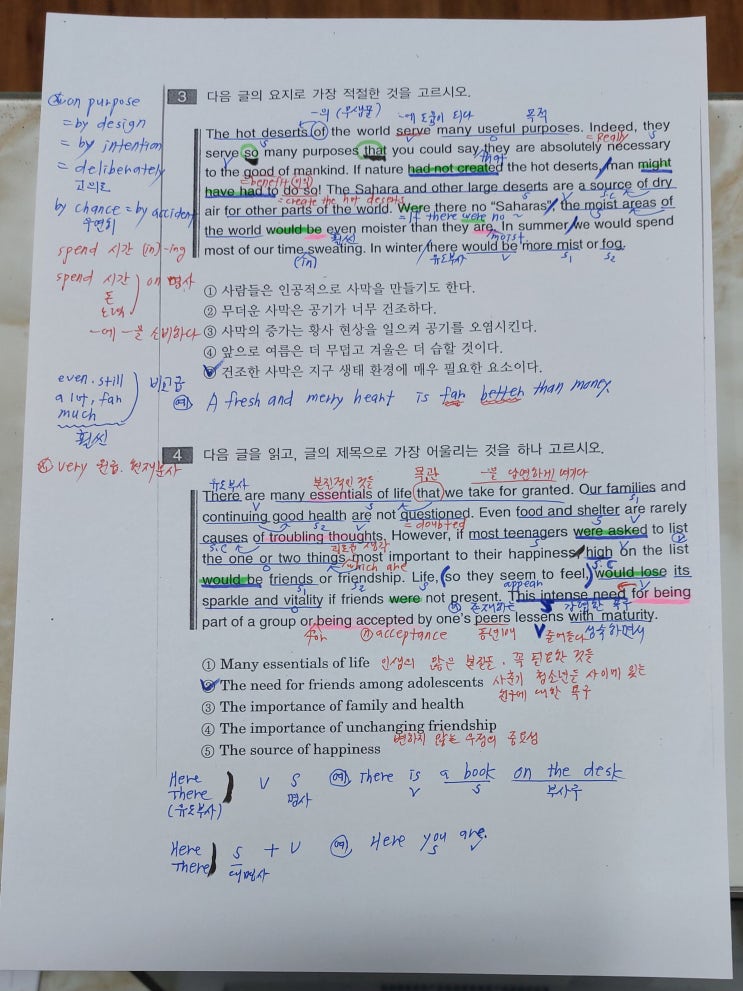 on purpose
= by design
= by intention
= deliberately
고의로
by chance = by accident
우연히
spend 시간 (in) -ing
spend 시간 on 명사
돈
노력
~에 ~을 소비하다
even. still
a lot, far
much
비교급
훨씬
very 원급. 현재분사
3 다음 글의 요지로 가장 적절한 것을 고르시오.
~의 (무생물) ~에 도움이 되다 목적
The hot deserts of the world serve many useful purposes. Indeed, they
= Really
serve so many purposes that you could say they are absolutely necessary
that
to the good of mankind. If nature had not created the hot deserts, man might
= benefit (이익)
have had to do so! The Sahara and other large deserts are a source of dry
= create the hot deserts
air for other parts of the world. Were there no "Saharas", the moist areas of
= If there were no ~
the world would be even moister than they are. In summer, we would spend
훨씬 moist
most of our time sweating. In winter there would be more mist or fog.
(in) 유도부사 V S₁ S₂
① 사람들은 인공적으로 사막을 만들기도 한다.
② 무더운 사막은 공기가 너무 건조하다.
③ 사막의 증가는 황사 현상을 일으켜 공기를 오염시킨다.
④ 앞으로 여름은 더 무덥고 겨울은 더 습할 것이다.
⑤ 건조한 사막은 지구 생태 환경에 매우 필요한 요소이다.
예) A fresh and merry heart is far better than money.
4 다음 글을 읽고, 글의 제목으로 가장 어울리는 것을 하나 고르시오.
유도부사 본질적인 것들 목관 ~을 당연하게 여기다
There are many essentials of life that we take for granted. Our families and
continuing good health are not questioned. Even food and shelter are rarely
= doubted
causes of troubling thoughts. However, if most teenagers were asked to list
the one or two things most important to their happiness, high on the list
which are
would be friends or friendship. Life, (so they seem to feel,) would lose its
appear
sparkle and vitality if friends were not present. This intense need for being
존재하는 강렬한 욕구
part of a group or being accepted by one's peers lessens with maturity.
for acceptance 동년배 V 줄어든다 성숙하면서
① Many essentials of life 인생의 많은 본질들. 꼭 필요한 것들
② The need for friends among adolescents 사춘기 청소년들 사이에 있는
친구에 대한 욕구
③ The importance of family and health
④ The importance of unchanging friendship
변하지 않는 우정의 중요성
⑤ The source of happiness
Here
There
(유도부사)
V S
명사
예) There is a book on the desk
V S 부사구
Here
There
S + V
대명사
예) Here you are.
S V